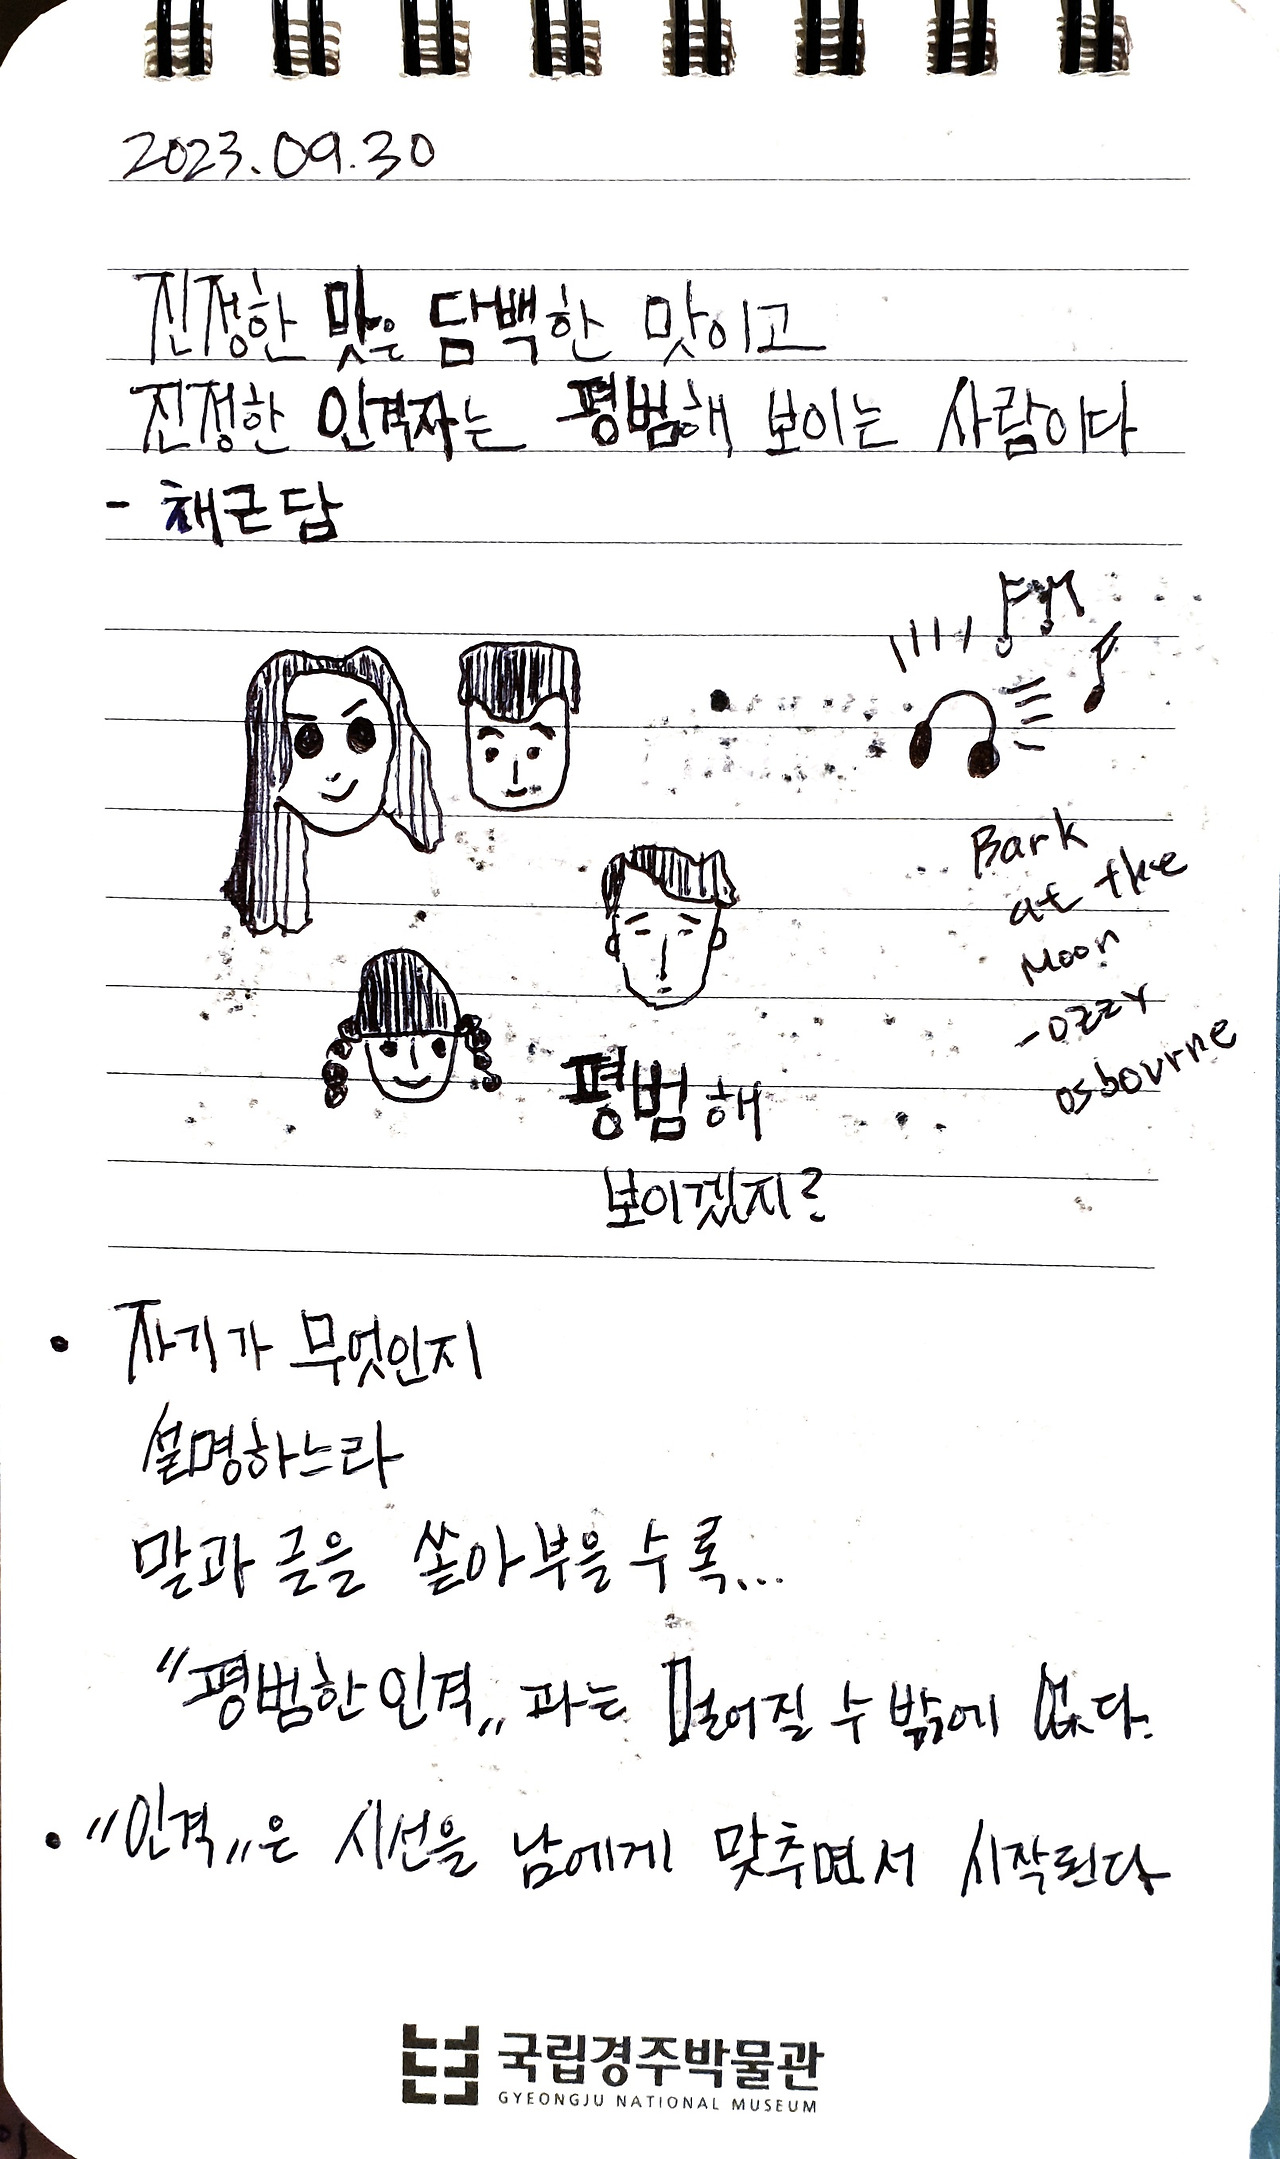 2023.09.30
진정한 맛은 담백한 맛이고
진정한 인격자는 평범해 보이는 사람이다
- 채근담
Bark
at the
Moon
- Ozzy
osbourne
평범해
보이겠지?
• 자기가 무엇인지
설명하느라
말과 글을 쏟아부을수록...
"평범한 인격"과는 멀어질 수밖에 없다.
• "인격"은 시선을 남에게 맞추면서 시작된다.
국립경주박물관
GYEONGJU NATIONAL MUSEUM